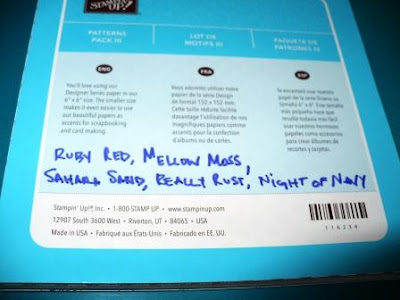 STAMPIN' UP!
PATTERNS
PACK III
LOT DE
MOTIFS III
PAQUETE DE
PATRONES III
ENG
FRA
ESP
You'll love using our
Designer Series paper in our
6" x 6" size. The smaller size
makes it even easier to use
our beautiful papers as
accents for scrapbooking
and card making.
Vous adorerez utiliser notre
papier de la série Design
de format 152 x 152 mm.
Cette taille réduite facilite
davantage l'utilisation de nos
magnifiques papiers comme
accents pour la confection
d'albums ou de cartes.
Te encantará usar nuestro
papel de la serie Diseño en
tamaño 6" x 6". Este tamaño
más pequeño hace que
resulte todavía más fácil
usar nuestros hermosos
papeles como accesorios
para crear álbumes de
recortes y tarjetas.
RUBY RED, MELLOW MOSS,
SAHARA SAND, REALLY RUST, NIGHT OF NAVY
Stampin' Up!®, Inc. • 1-800-STAMP UP • www.stampinup.com
12907 South 3600 West • Riverton, UT • 84065 • USA
Made in USA • Fabriqué aux États-Unis • Fabricado en EE. UU.
116234